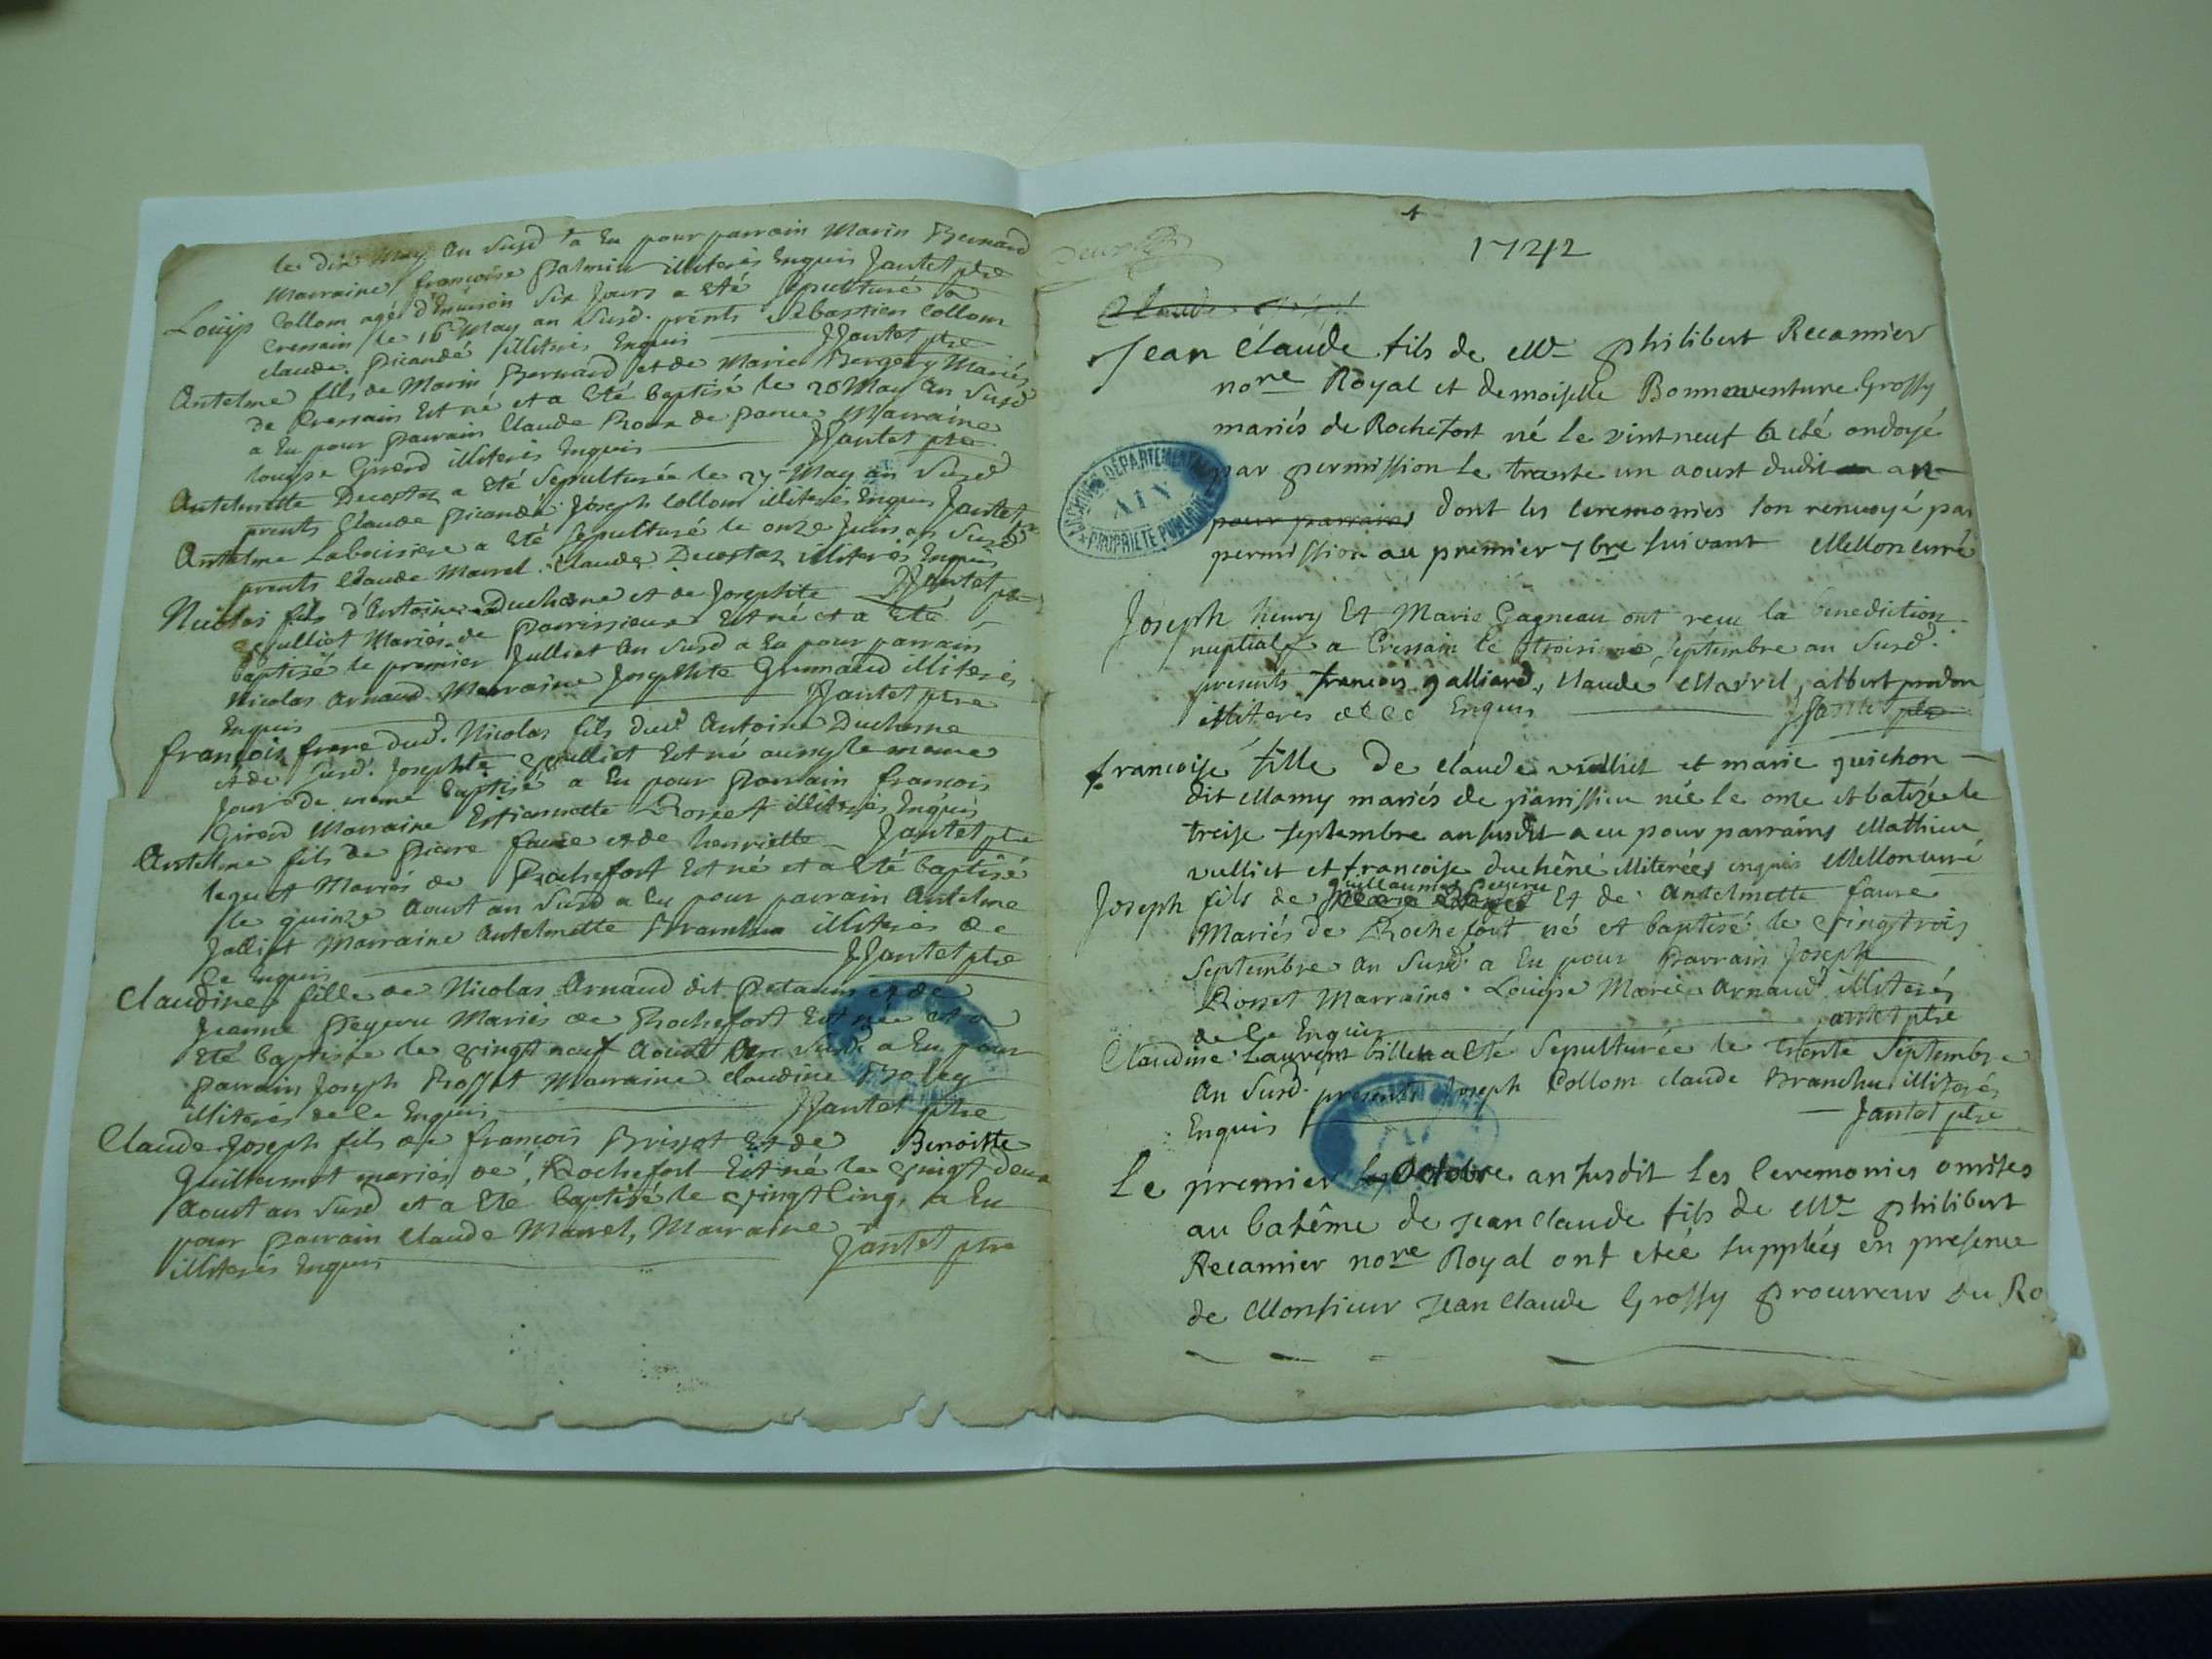 le dix May an susd a Eu pour parrain Marin Bernard
Marraine françoise palmier illiterés Enquis Jantet ptre
Louijs Collom agé d'Environ Six Jours a eté Sepulturé a
Cressain le 16 May an Susd. pnts Sebastien Collom
claude picandé illiterés Enquis JJantet ptre
Antelme fils de Marin Bernard et de Marie Bergery Mariés
de Cressain Est né et a Eté baptisé le 20 May an Susd
a Eu pour parrain Claude Roux de Marraine
Louise Girerd illiterés Enquis JJantet ptre
Antelmette Decostaz a Eté Sepulturée le 27 May an Susd
presents Claude picandé Joseph Collom illiterés Enquis Jantet
Antelme Laboisiere a Eté Sepulturé le onze Juin an Susd
presents Claude Marrel. Claude Decostaz illiterés Enquis
JJantet ptre
Nicolas fils d'Antoine Duchesne et de Josephte
vulliet Mariés de parrissieux Est né et a Eté
baptisé le premier Julliet an Susd a Eu pour parrain
Nicolas Arnaud Marraine Josephte Grimaud illiterés
Enquis JJantet ptre
françois frere dud. Nicolas fils dud Antoine Duchesne
et de susd. Josephte vulliet Est né aussy le meme
Jour de meme baptisé a Eu pour parrain françois
Girerd Marraine Estiennette Rosset illiterés Enquis
Jantet ptre
Antelme fils de pierre faure et de henriette
Mariés de Rochefort Est né et a Eté baptisé
le quinze Aoust an Susd a Eu pour parrain Antelme
Jolliet Marraine Antelmette illiterés de
ce Enquis JJantet ptre
Claudine fille de Nicolas Arnaud dit et de
Jeanne peysson Mariés de Rochefort Est née et a
Eté baptisée le vingt neuf Aoust an Susd. a Eu pour
parrain Joseph Rosset Marraine Claudine
illiterés de ce Enquis JJantet ptre
Claude Joseph fils de françois Brissot Et de Benoitte
Guillermet mariés de Rochefort Est né le vingt deux
Aoust an Susd et a Eté baptisé le vingt Cinq, a Eu
pour parrain Claude Marrel, Marraine
illiterés Enquis Jantet ptre
4
1742
Jean Claude fils de Mr philibert Recamier
nore Royal et demoiselle Bonnaventure Grossy
mariés de Rochefort né le vint neuf & eté ondoyé
par permission le trante un aoust dudit an
pour parrains Dont les ceremonies son renvoyé par
permission au premier 7bre suivant Mellon curé
ARCHIVES DÉPARTEMENTALES
AIN
PROPRIÉTÉ PUBLIQUE
Joseph henry Et Marie Gagneau ont reçu la benediction
nuptiale a Cressain le troisieme septembre an Susd.
presents francois galliard, Claude Marrel, albert prodon
illiteres de ce Enquis JJantet ptre
francoise fille De claude vulliet et marie guichon
dit Mamy mariés de parissieu née le onze et batizée le
treise septembre an susdit a eu pour parrains Mathieu
vulliet et francoise duchêne illiterées enquis Mellon curé
Joseph fils de Guillaume Et de Antelmette faure
Mariés de Rochefort né et baptisé le vingt trois
Septembre an Susd. a Eu pour parrain Joseph
Rosset Marraine Louise Marie Arnaud illiterés
de ce Enquis Jantet ptre
Claudine Laurent a Eté Sepulturée le trente Septembre
an Susd. presents Joseph Collom claude Branchu illiterés
Enquis Jantet ptre
Le premier octobre an susdit Les ceremonies omites
au batême de Jean Claude fils de Mr philibert
Recamier nore Royal ont eteé supplées en presence
de Monsieur Jean Claude Grossy procureur Du Ro